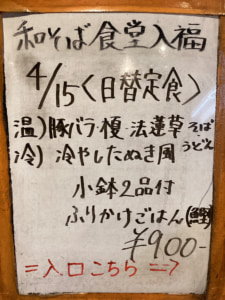 和そば食堂入福
4/15〈日替定食〉
温)豚バラ・榎・法蓮草 そば・うどん
冷)冷やしたぬき風
小鉢2品付
ふりかけごはん(鰹)
¥900-
=入口こちら=>